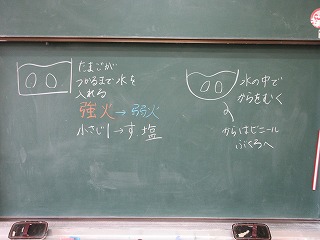 たまごが
つかるまで水を
入れる
強火→弱火
小さじ1→す、塩
水の中で
からをむく
からはビニール
ぶくろへ